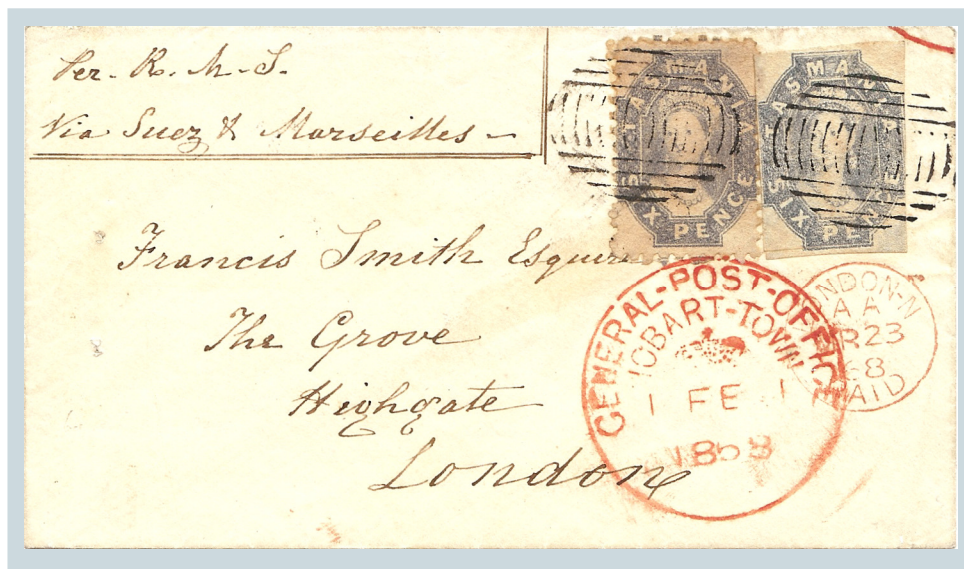 Per. R. M. S.
Via Suez & Marseilles –
TASMANIA
SIX PENCE
TASMANIA
SIX PENCE
Francis Smith Esquire
The Grove
Highgate
London
GENERAL-POST-OFFICE
HOBART-TOWN
1 FE 1
LONDON-N
AA
23
68
PAID